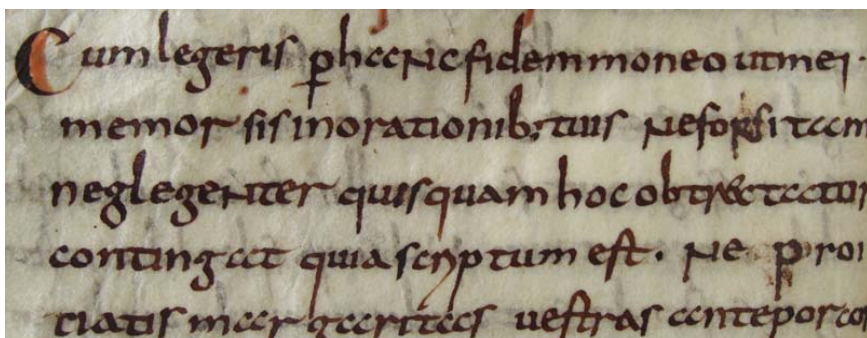 Cum legeris p̱ hanc fidem moneo ut mei ·
memor sis in orationib; tuis Ne forsitam
neglegenter quisquam hoc obtrectatur
contingat quia scriptum est · Ne proi
ciatis margaritas uestras ante porco